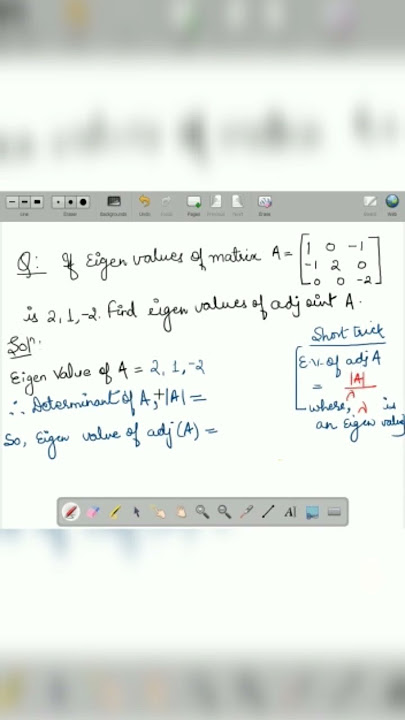 Line Eraser Backgrounds Undo Redo Pages Previous Next Erase Board Web
Q: If Eigen values of matrix A = [1 0 -1
-1 2 0
0 0 -2]
is 2, 1, -2. Find eigen values of adjoint A.
Solⁿ:
Eigen Value of A = 2, 1, -2
∴ Determinant of A, |A| =
So, Eigen value of adj(A) =
Short trick
E.V. of adj A
= |A|
λ
where, λ is
an Eigen value
A|